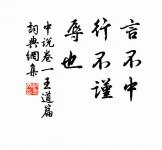 言不中
行不谨
辱也
中说卷一王道篇
词典网集